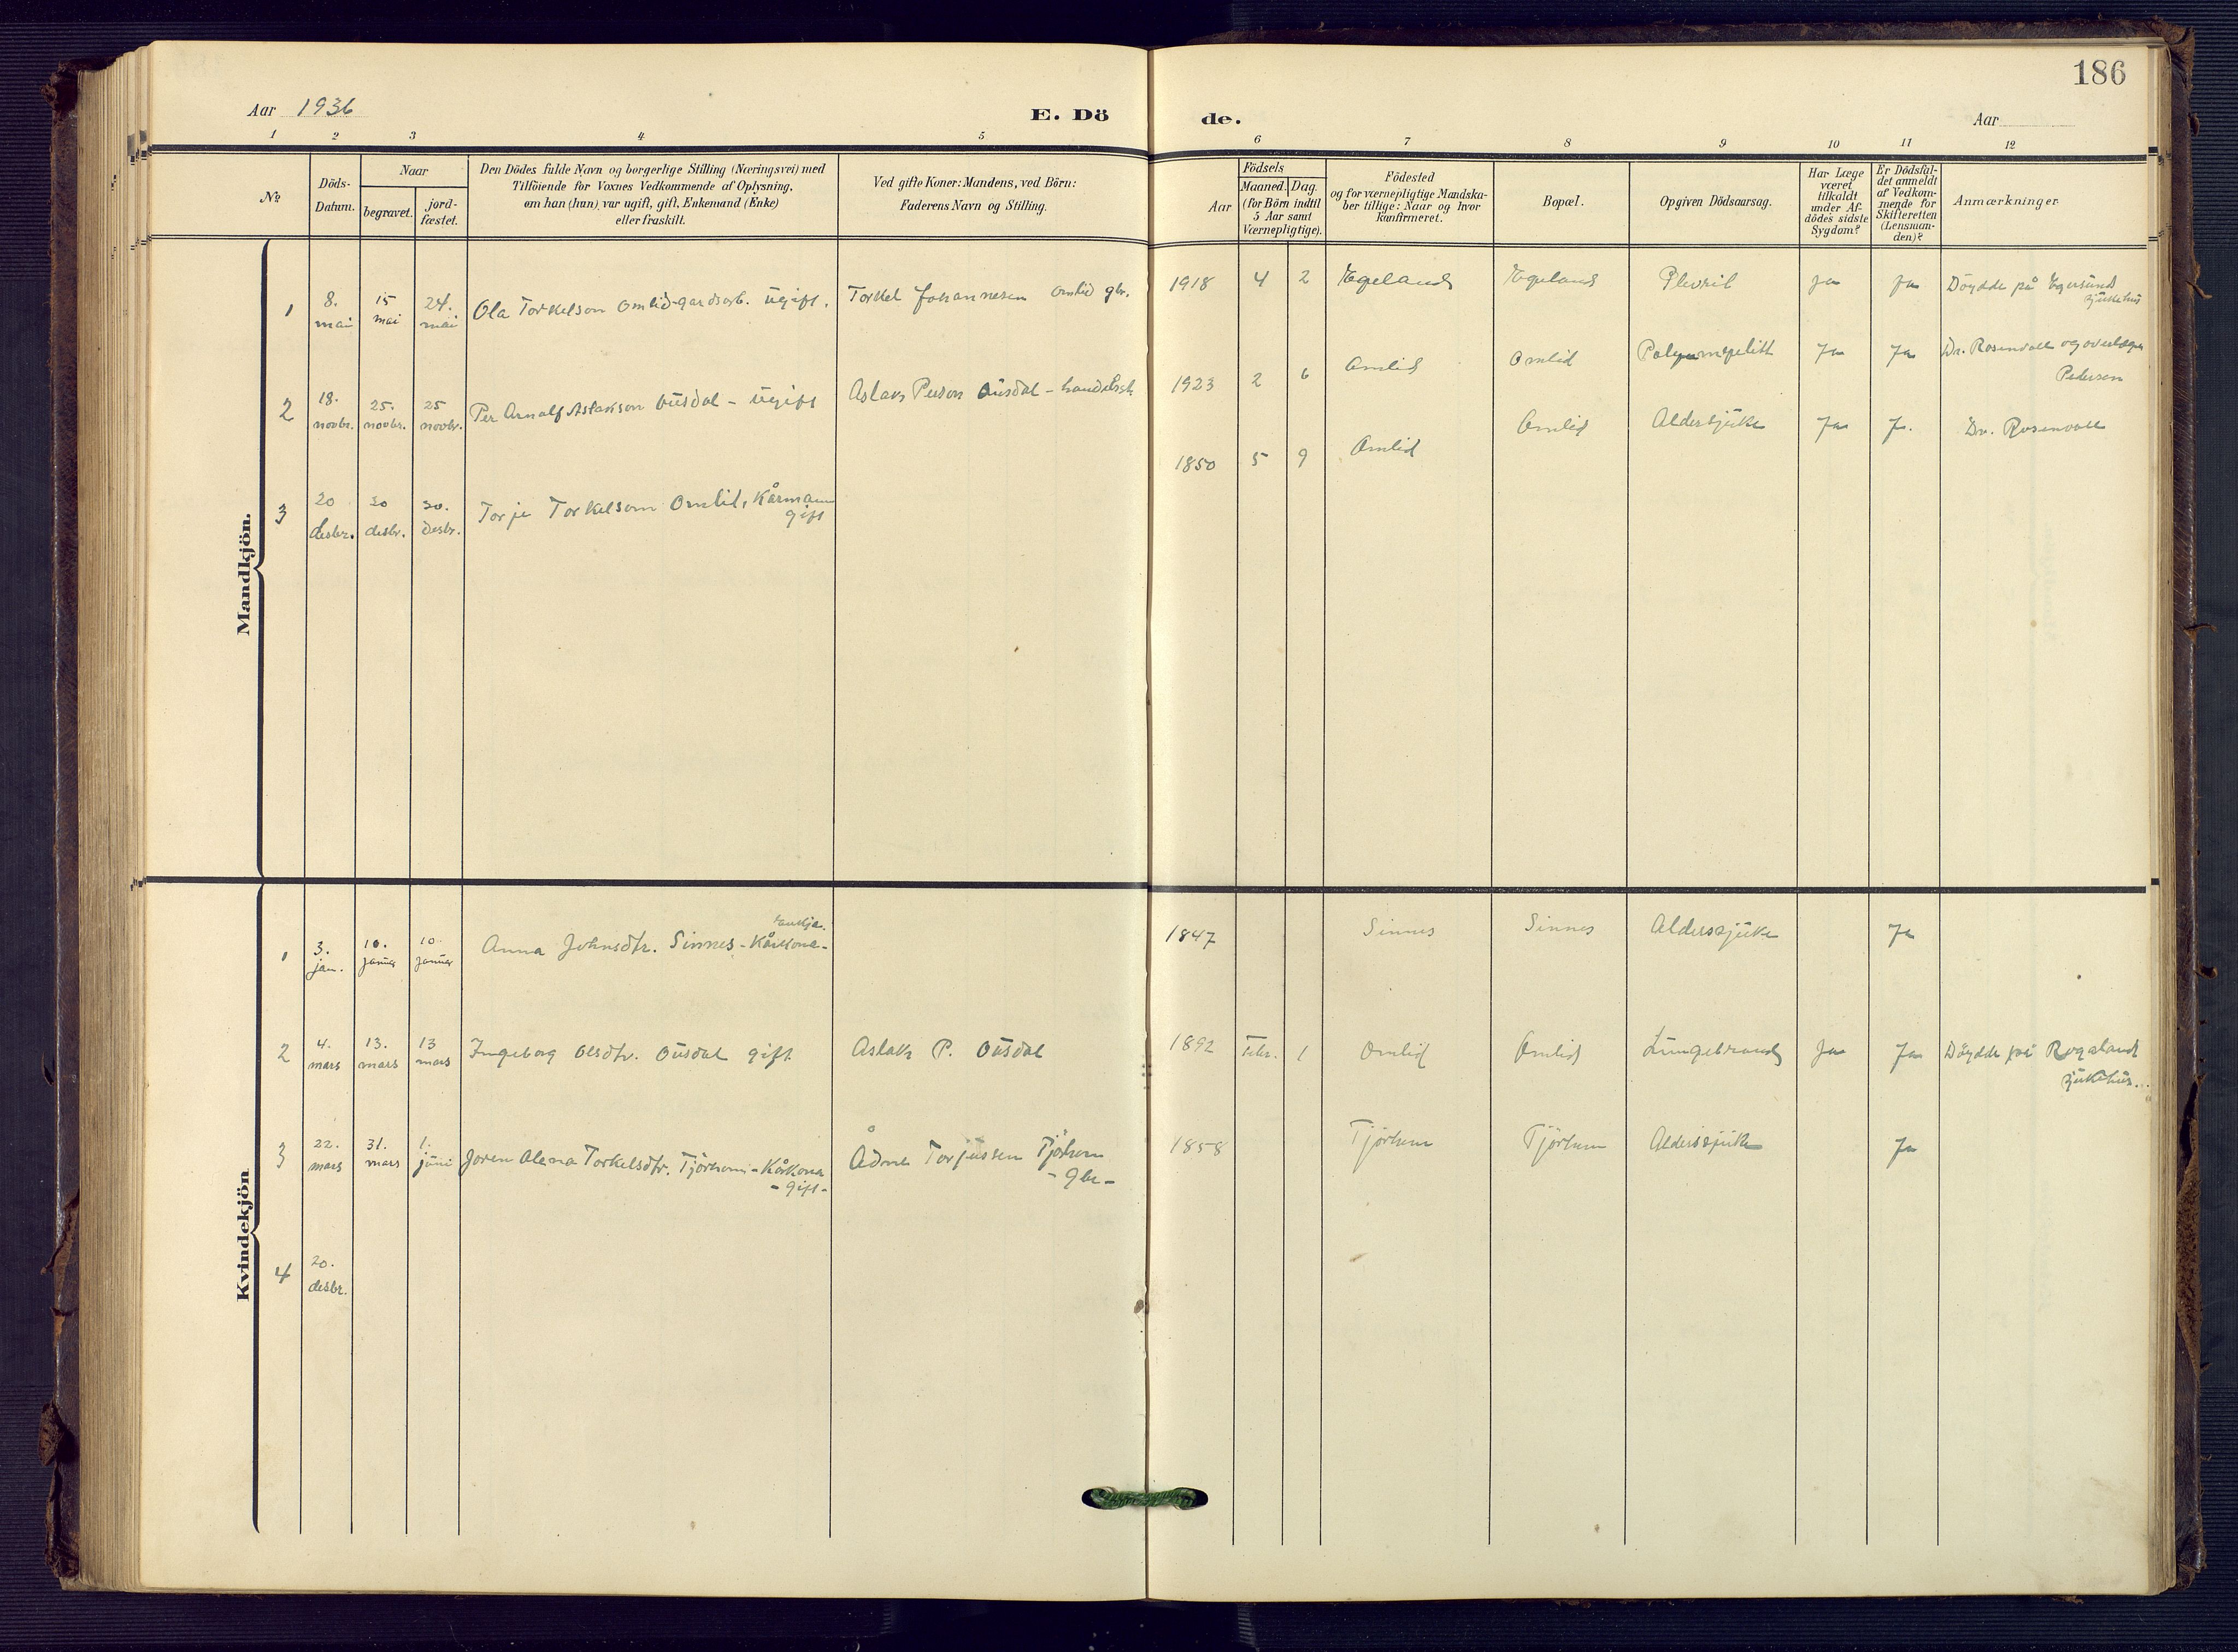 186
Aar 1936
E. Dö
de.
Aar
1 2 3 4 5 6 7 8 9 10 11 12
№
Döds-
Datum.
Naar
begravet.
jord-
fæstet.
Den Dödes fulde Navn og borgerlige Stilling (Næringsvei) med
Tilföiende for Voxnes Vedkommende af Oplysning,
om han (hun) var ugift, gift, Enkemand (Enke)
eller fraskilt.
Ved gifte Koner: Mandens, ved Börn:
Faderens Navn og Stilling.
Födsels
Aar
Maaned. Dag.
(for Börn indtil
5 Aar samt
Værnepligtige).
Födested
og for værnepligtige Mandska-
ber tillige: Naar og hvor
konfirmeret.
Bopæl.
Opgiven Dödsaarsag.
Har Læge
været
tilkaldt
under Af-
dödes sidste
Sygdom?
Er Dödsfal-
det anmeldt
af Vedkom-
mende for
Skifteretten
(Lensman-
den)?
Anmærkninger
Mandkjön.
1 8. mai 15 mai 24. mai Ola Torkelson Omlid-gardsarb. Ugift. Torkel Johannesen Omlid gbr. 1918 4 2 Egeland Egeland Plevrit ja ja Döydde på Egersund
sjukehus
2 18. novbr. 25. novbr. 25 novbr. Per Arnalf Aslakson Ousdal - Ugift Aslak Person Ousdal - 1923 2 6 Omlid Omlid Ja Ja Dr. Rosenvall og overlege
Pedersen
3 20 desbr. 30 desbr. 30. desbr. Torje Torkelson Omlid, Kårmann
gift 1850 5 9 Omlid Omlid Aldersjuke Ja J. Dr. Rosenvall
Kvindekjön
1 3. jan. 10. januar 10. januar Anna Johnsdtr. Sinnes - Kårkona -
enkja. 1847 Sinnes Sinnes Alderssjuke Ja
2 4. mars 13. mars 13 mars Ingeborg Olsdtr. Ousdal gift Aslak P. Ousdal 1892 Febr. 1 Omlid Omlid Lungebrand Ja Ja Döydde på Rogaland
sjukehus.
3 22. mars 31. mars 1. juni Joren Alena Torkelsdtr. Tjörhom - Kårkona
- gift - Ådne Torjussen Tjörhom
- Gbr - 1858 Tjörhom Tjörhom Alderssjuke Ja
4 20. desbr.